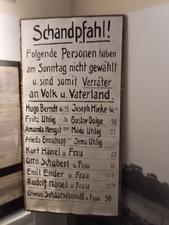 Schandpfahl!
Folgende Personen haben
am Sonntag nicht gewählt
u. sind somit Verräter
an Volk u. Vaterland.
Hugo Berndt Joseph Mieke
Fritz Uhlig Gustav Dolge
Amanda Hengst Milda Uhlig
Frieda Uhlig
Kurt Hänel u. Frau
Otto Schubert u. Frau
Emil Ender u. Frau
Rudolf Hänel u. Frau
u. Frau